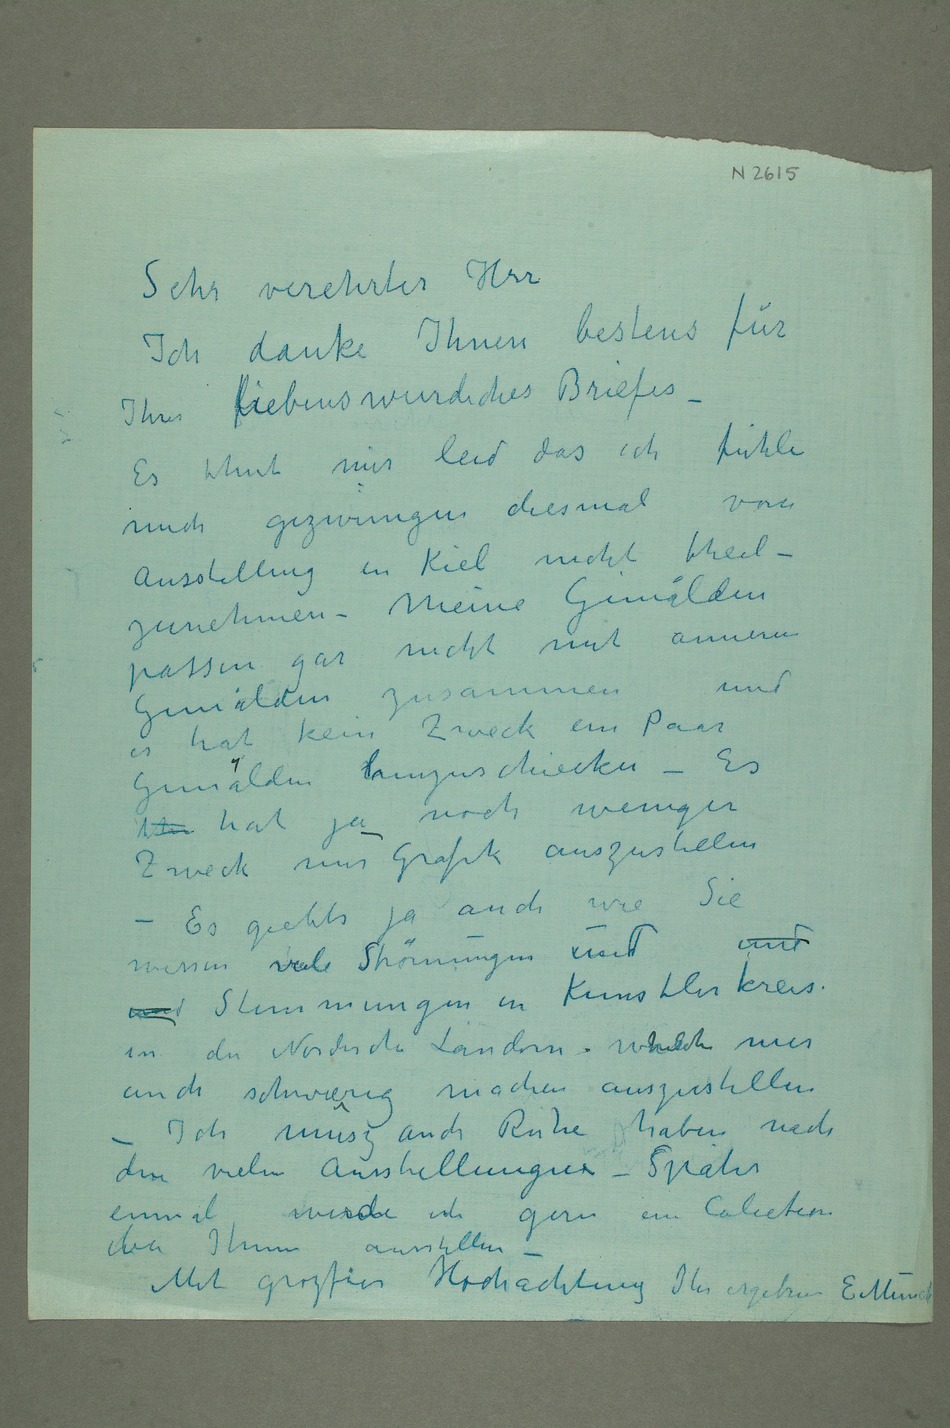 N 2615
Sehr verehrter Herr
Ich danke Ihnen bestens für
Ihres liebenswurdiches Briefes –
Es thut mir leid das ich fühle
mich gezwingen diesmal von
Ausstellung in Kiel nicht theil–
zunehmen – Meine Gemälden
passen gar nicht mit anneren
Gemälden zusammen und
es hat kein Zweck ein Paar
Gemälden hinzuschiecken – Es
hat ja noch weniger
Zweck nur Grafik auszustellen
– Es giebts ja auch wie Sie
wissen viele Strömungen und und
und Stimmungen in Kunstlerkreis.
in die Nordische Ländern. welche mir
auch schwierig machen auszustellen
– Ich musz auch Ruhe haben nach
den vielen Ausstellungen – Später
einmal werde ich gern ein Colection
bei Ihnen ausstellen –
Mit grozfter Hochachtung Ihr ergebener E Munch